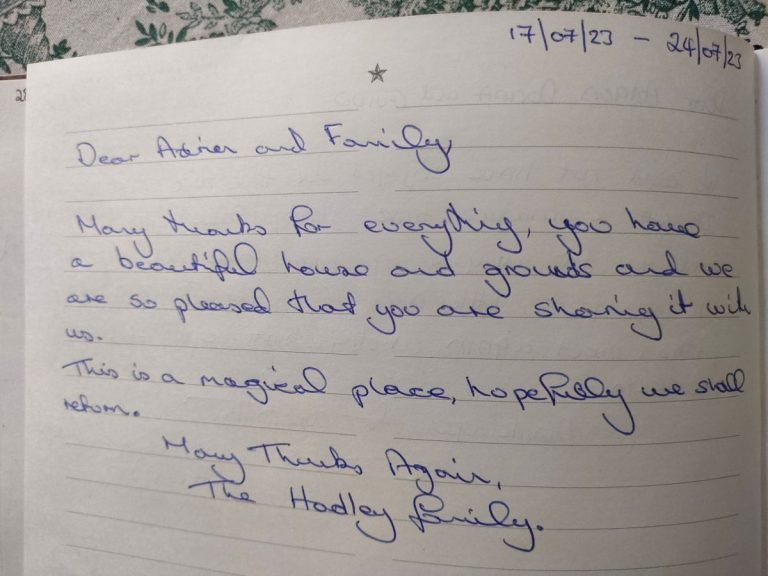 17/07/23 - 24/07/23
Dear and Family
Many thanks for everything, you have
a beautiful house and grounds and we
are so pleased that you are sharing it with
us.
This is a magical place, hopefully we shall
return.
Many Thanks Again,
The Hadley family.